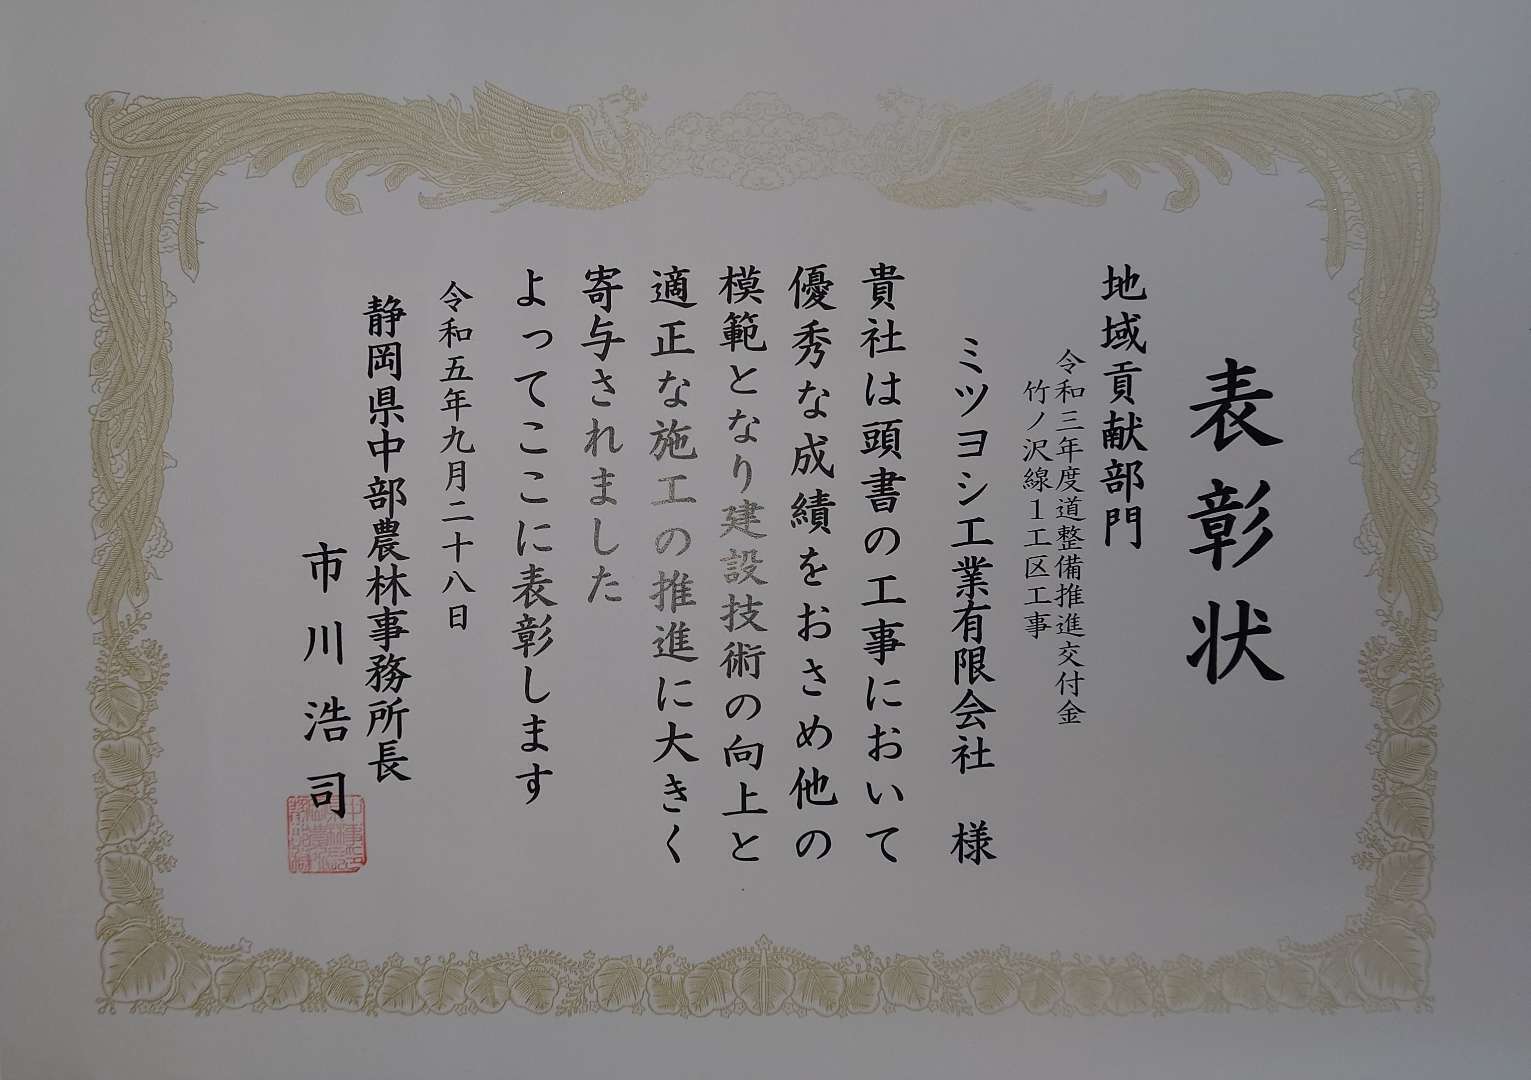 表彰状
地域貢献部門
令和三年度道整備推進交付金
竹ノ沢線１工区工事
ミツヨシ工業有限会社　様
貴社は頭書の工事において
優秀な成績をおさめ他の
模範となり建設技術の向上と
適正な施工の推進に大きく
寄与されました
よってここに表彰します
令和五年九月二十八日
静岡県中部農林事務所長
市川浩司